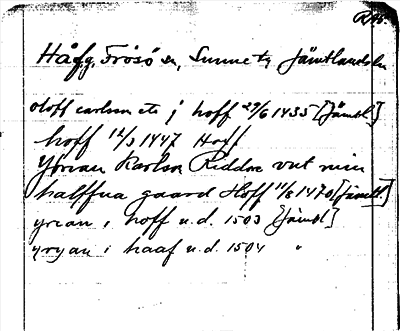 Håfg, Frösö sn, Sunne tg Jämtlands ln
oloff carlsson etc j hoff 29/6 1435 [Jämtl.]
hoff 12/3 1447 Hoff
Yörian Karlson Riddare vut min
halffua gaard Hoff 11/8 1470 [Jämtl.]
yrian i hoff u.d. 1503 [Jämtl]
yryan i haaf u.d. 1504 "